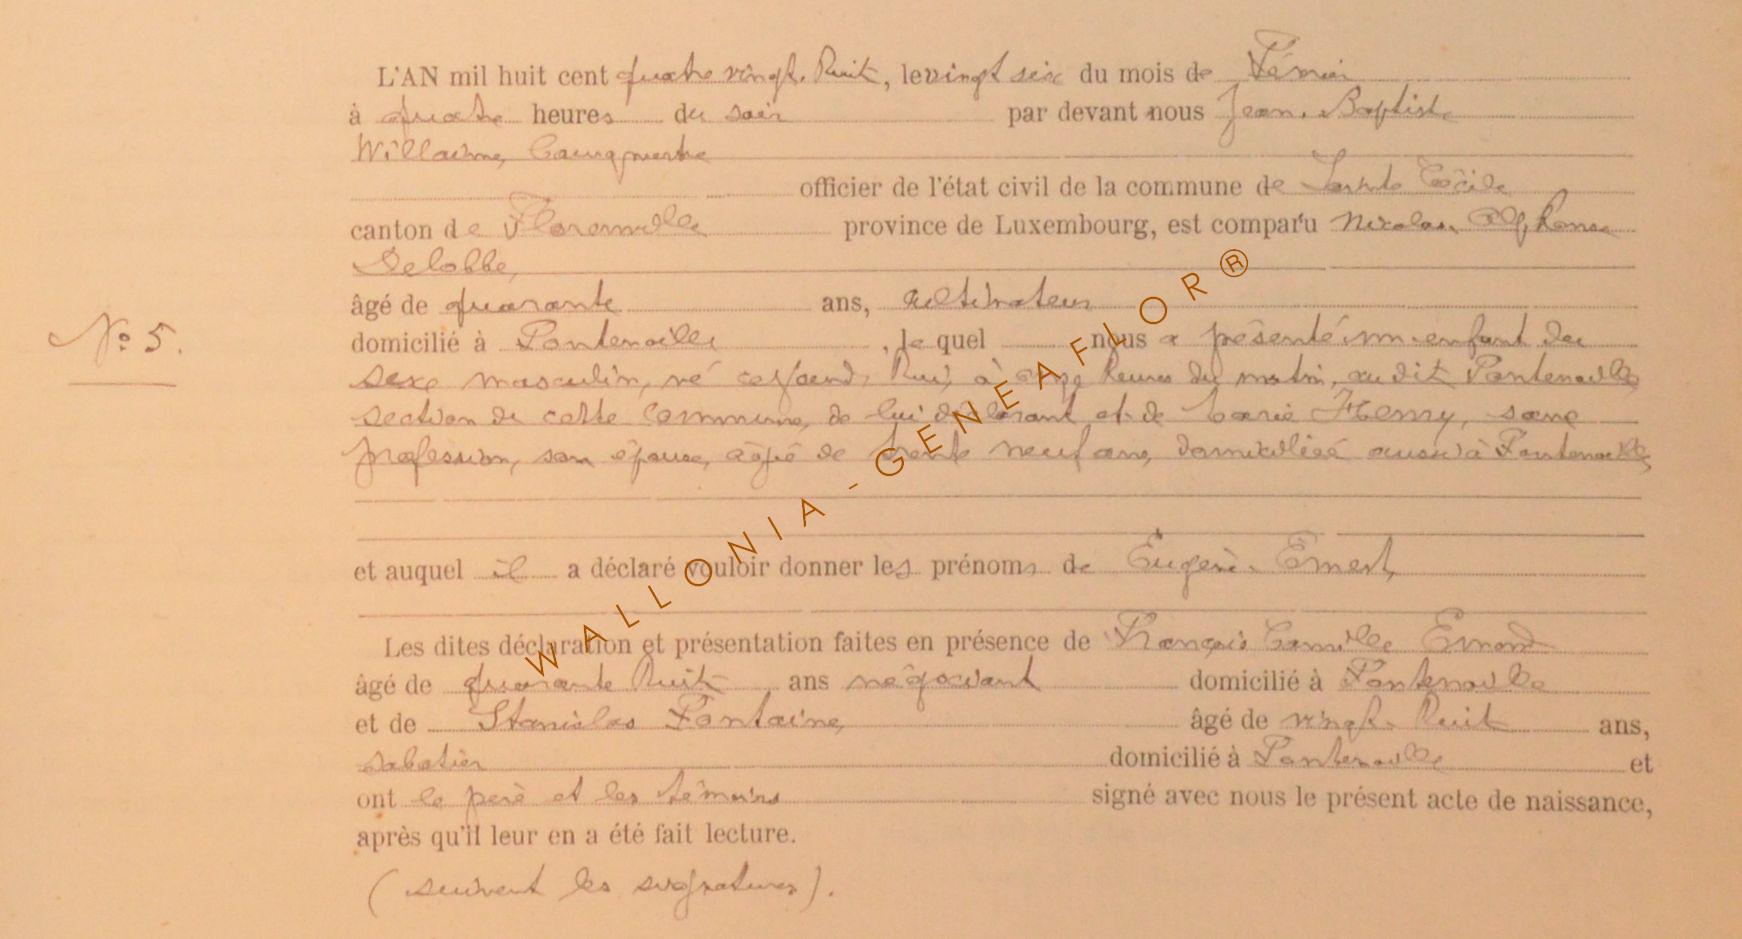 L'AN mil huit cent quatre vingt-huit, le vingt six du mois de Février
à quatre heures du soir par devant nous Jean-Baptiste
Willaime, bourgmestre
officier de l'état civil de la commune de Sainte Cécile
canton de Florenville province de Luxembourg, est comparu Nicolas Alphonse
Delobbe,
âgé de quarante ans, cultivateur
N° 5.
domicilié à Fontenoille, lequel nous a présenté un enfant du
sexe masculin, né cejourd'hui, à onze heures du matin, au dit Fontenoille
section de cette commune, de lui déclarant et de Marie Henry, sans
profession, son épouse, âgée de trente neuf ans, domiciliée aussi à Fontenoille,
et auquel il a déclaré vouloir donner les prénoms de Eugène-Ernest,
Les dites déclaration et présentation faites en présence de François Camille Emond
âgé de quarante huit ans négociant domicilié à Fontenoille
et de Stanislas Fontaine, âgé de vingt-huit ans,
sabotier domicilié à Fontenoille et
ont le père et les témoins signé avec nous le présent acte de naissance,
après qu'il leur en a été fait lecture.
(suivent les signatures).
WALLONIA - GENEAFLOR®